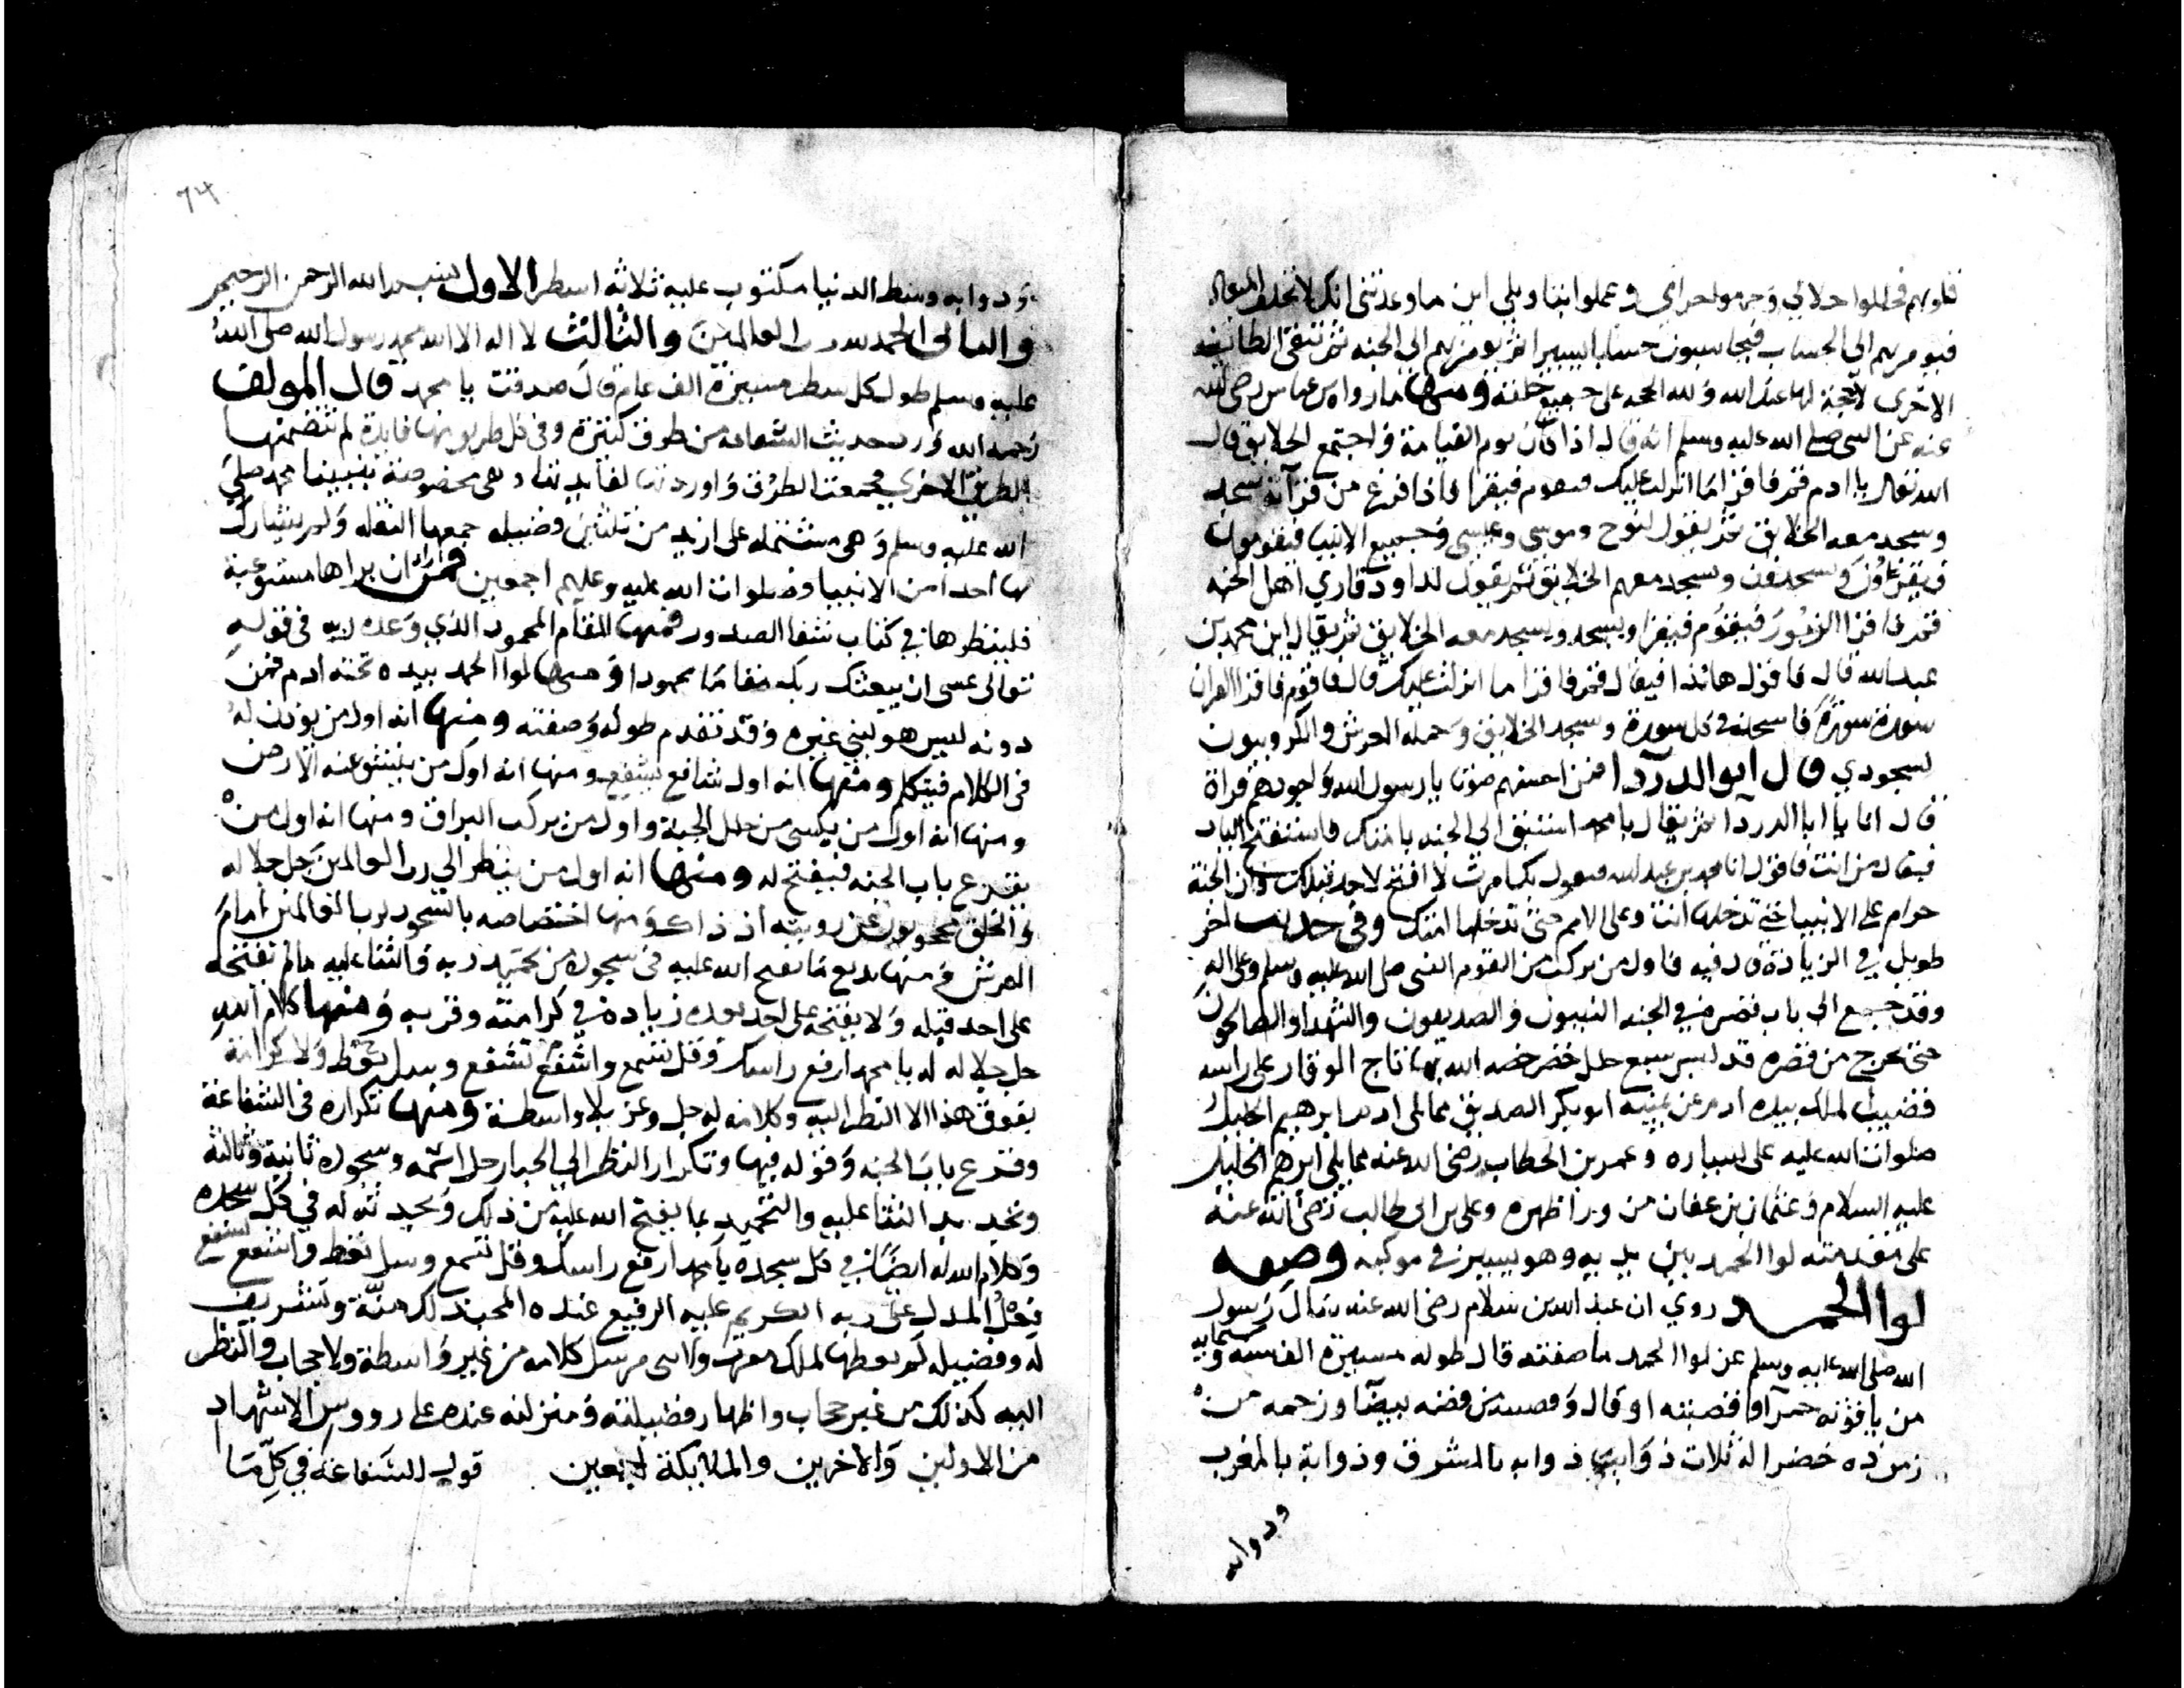 قلوبهم فحللوا حلالي وحرموا حرامي وعملوا اننا وبلي اين ما وعدتني انك لا تخلف الميعاد
فيومر بهم الي الحساب فيحاسبون حسابا يسيرا ثم يومر بهم الي الجنه ثم تبقى الطائفه
الاخرى لا حجة لها عند الله ولله الحجه على جميع خلقه ومنها ما رواه بن عباس رضى الله
عنه عن النبى صلى الله عليه وسلم انه قال اذا كان يوم القيامة واجتمع الخلايق قال
الله تعالى يا ادم قم فاقرا ما انزلت عليك فيقوم فيقرا فاذا فرغ من قرآنه سجد
وسجد معه الخلايق ثم يقول لنوح وموسى وعيسى وجميع الانبيا فيقومون
فيقرءون ويسجدون ويسجد معهم الخلايق ثم يقول لداود قاري اهل الجنه
قم فاقرا الزبور فيقوم فيقرا ويسجد ويسجد معه الخلايق ثم يقال اين محمد بن
عبد الله قال فاقول هانذا فيقال قم فاقرا ما انزلت عليك قال فاقوم فاقرا القران
سورة سورة فاسجد في كل سورة وسجد الخلايق وحملة العرش والكروبيون
لسجودي قال ابو الدردا فمن احسنهم صوتا يا رسول الله واجودهم قراة
قال انا يا ابا الدردا ثم يقال يا محمد استبق الى الجنه بامتك فاستفتح الباب
فيقال من انت فاقول انا محمد بن عبد الله فيقول بك امرت لا افتح لاحد قبلك وان الجنة
حرام على الانبيا حتى تدخلها انت وعلى الامم حتى تدخلها امتك وفى حديث اخر
طويل في الزيادة قد فيه فاول من يركب من القوم النبى صلى الله عليه وسلم وعلى اله
وقد جميع الى باب قصره في الجنه النبيون والصديقون والشهدا والصالحون
حتى يخرج من قصره قد لبس سبع حلل خضر خصه الله بها تاج الوقار على راسه
قضيب الملك بيده ادم عن يمينه ابو بكر الصديق مما يلى ادم ابرهيم الخليل
صلوات الله عليه على يساره وعمر بن الخطاب رضى الله عنه مما يلى ابرهيم الخليل
عليه السلام وعثمان بن عفان من ورا ظهره وعلى بن ابى طالب رضى الله عنه
على مقدمته لوا الحمد بين يديه وهو يسير في موكبه وصفه
لوا الحمد روي ان عبد الله بن سلام رضى الله عنه سال رسول
الله صلى الله عليه وسلم عن لوا الحمد ما صفته قال طوله مسيرة الف سنه وستمايه
من ياقوته حمرا وقصبته او قال وقصبته من فضه بيضا وزجه من
زمرده خضرا له ثلاث ذوايب ذوابه بالمشرق وذوابة بالمغرب
وذوابه
٦٣
وذوابه وسط الدنيا مكتوب عليه ثلاثه اسطر الاول بسم الله الرحمن الرحيم
والثانى الحمد لله رب العالمين والثالث لا اله الا الله محمد رسول الله صلى الله
عليه وسلم طول كل سطر مسيرة الف عام قال صدقت يا محمد قال المولف
رحمه الله ورد حديث الشفاعه من طرق كثيرة وفى كل طريق منها فايدة لم تتضمنها
الطريق الاخرى فجمعت الطرق واوردتها لفايدتها وهى مخصوصة بنبينا محمد صلى
الله عليه وسلم وهى مشتمله على ازيد من ثلثين فضيله جمعها الثقله ولم يشارك
بها احدا من الانبيا وصلوات الله عليه وعليهم اجمعين فمن اراد ان يراها مستوعبة
فلينظرها في كتاب شفا الصدور فمنها المقام المحمود الذي وعده ربه فى قوله
تعالى عسى ان يبعثك ربك مقاما محمودا ومنها لوا الحمد بيده تحته ادم فمن
دونه ليس هو لنبي غيره وقد تقدم طوله وصفته ومنها انه اول من يوذن له
فى الكلام فيتكلم ومنها انه اول شافع يشفع ومنها انه اول من ينشق عنه الارض
ومنها انه اول من يكسى من حلل الجنة واول من يركب البراق ومنها انه اول من
يقرع باب الجنه فيفتح له ومنها انه اول من ينظر الي رب العالمين جل جلاله
والخلق محجوبون عن رويته اذ ذاك ومنها اختصاصه بالسجود لرب العالمين امام
العرش ومنها بديع ما يفتح الله عليه فى سجوده من تحميد ربه والثنا عليه ما لم يفتحه
على احد قبله ولا يفتحه على احد بعده زيادة في كرامته وقربه ومنها كلام الله
جل جلاله له يا محمد ارفع راسك وقل تسمع واشفع تشفع وسل تعط ولا كرامة
يفوق هذا الا النظر اليه وكلامه له جل وعز بلا واسطة ومنها تكراره فى الشفاعة
وقرع باب الجنه وقوله فيها وتكرار النظر الي الجبار جل اسمه وسجوده ثانية وثالثه
وتجديد الثنا عليه والتحميد بما يفتح الله عليه من ذلك وتحيد ثه له في كل سجده
وكلام الله له ايضا في كل سجدة يا محمد ارفع راسك وقل تسمع وسل تعط واشفع تشفع
فعل المدل على ربه الكريم عليه الرفيع عنده المحب ذلك منة وتشريف
له وفضيله لم يعطها لملك مقرب ولا نبى مرسل كلامه من غير واسطة ولا حجاب والنظر
اليه كذلك من غير حجاب واظهار فضيلته ومنزلته عنده على رووس الاشهاد
من الاولين والاخرين والملايكة اجمعين قوله الشفاعة في كل ما